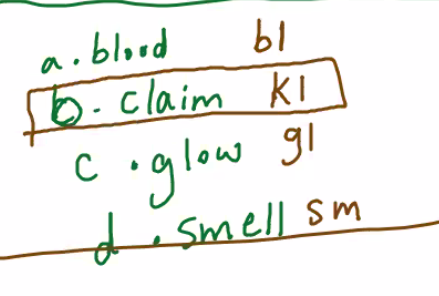 a. blood bl
b. claim kl
c. glow gl
d. smell sm